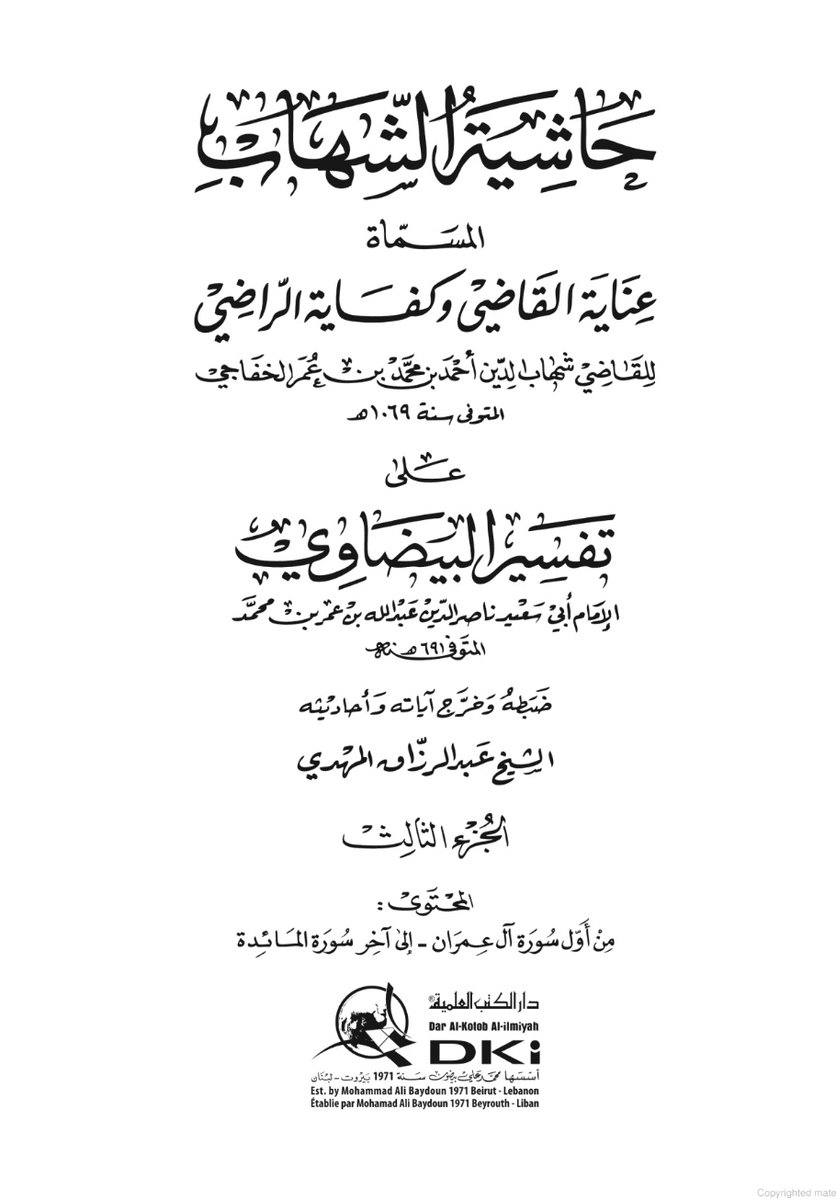 حَاشِيَةُ الشِّهَابِ
المسَمّاة
عِنَايَة القَاضِيْ وكفَاية الرّاضِيْ
لِلقَاضِيْ شهَاب الدِّين أحْمَد بن محمَّد بن عُمَر الخفَاجيْ
المتوفى سنة ١٠٦٩ هـ
عَلىٰ
تفسِير البَيضَاوِيْ
الإمَام أبيْ سَعيْد ناصر الدّين عَبد الله بن عمر بن محمَّد
المتوَفى ٦٩١ هـ
ضَبَطهُ وَخرَّج آياته وَأحاديْثه
الشيخ عَبد الرزّاق المهْدي
الجُزء الثالِث
المحْتوَى:
مِنْ أَوَّل سُورَة آل عِمرَان - إلى آخِر سُورَة المَائِدة
دار الكتب العلمية®
Dar Al-Kotob Al-ilmiyah
DKi
أسسها محمد علي بيضون سنة 1971 بيروت - لبنان
Est. by Mohammad Ali Baydoun 1971 Beirut - Lebanon
Établie par Mohamad Ali Baydoun 1971 Beyrouth - Liban
Copyrighted mate